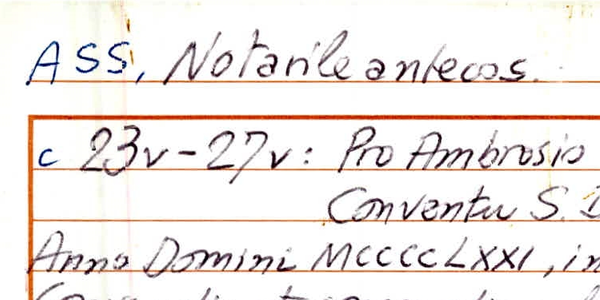 ASS, Notarile antecos.
c 23v-27v: Pro Ambrosio
Conventu S.
Anno Domini MCCCCLXXI, in